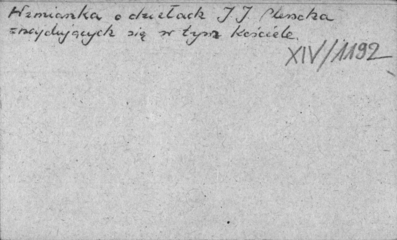 Wzmianka o dziełach J J Plerscha
znajdujących się w tym kościele.
XIV/1192